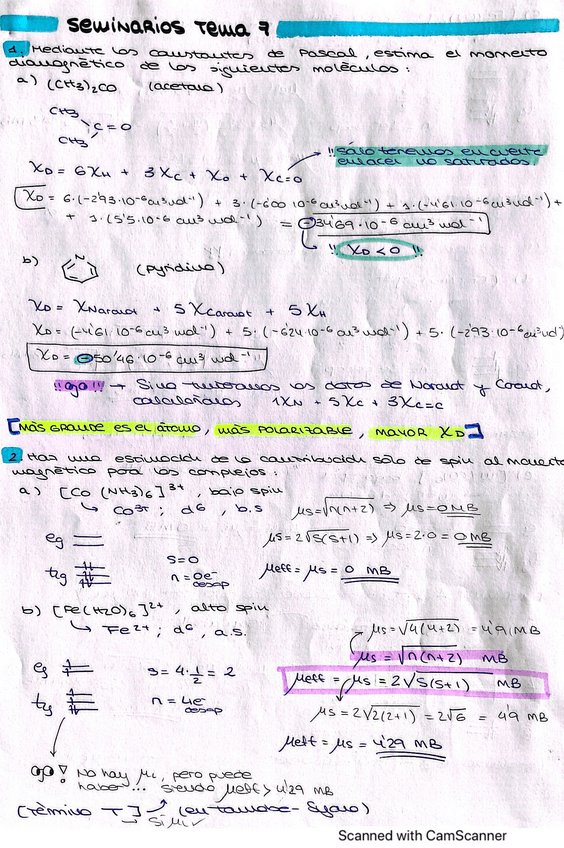 SEMINARIOS TEMA 7
1. Mediante las constantes de Pascal, estima el momento
diamagnético de las siguientes moléculas:
a) (CH3)2CO (acetona)
CH3
C=O
CH3
!! Sólo tenemos en cuenta
enlaces no saturados
XD = 6XH + 3XC + XO + XC=O
XD = 6·(-2'93·10-6 cm3 mol-1) + 3·(-6'00·10-6 cm3 mol-1) + 1·(-4'61·10-6 cm3 mol-1) +
+ 1·(5'5·10-6 cm3 mol-1) = -34'69·10-6 cm3 mol-1
!! XD < 0 !!
b) N (Pyridina)
XD = XNaromat + 5XCaromat + 5XH
XD = (-4'61·10-6 cm3 mol-1) + 5·(-6'24·10-6 cm3 mol-1) + 5·(-2'93·10-6 cm3 mol
XD = -50'46·10-6 cm3 mol-1
!!ojo!! → Si no tuviéramos los datos de Naromat y Caromat,
calcularíamos 1XN + 5XC + 3XC=C
[MÁS GRANDE ES EL ÁTOMO, MÁS POLARIZABLE, MAYOR XD]
2 Haz una estimación de la contribución sólo de spin al momento
magnético para los complejos:
a) [Co(NH3)6]3+, bajo spin
↳ Co3+; d6, b.s
μs = √n(n+2) ⇒ μs = 0 MB
eg
μs = 2√S(S+1) ⇒ μs = 2·0 = 0 MB
t2g
S=0
n = 0e- desap
μeff = μs = 0 MB
b) [Fe(H2O)6]2+, alto spin
↳ Fe2+; d6, a.s.
μs = √4(4+2) = 4'91 MB
μs = √n(n+2) MB
eg
S = 4·1/2 = 2
μeff = μs = 2√S(S+1) MB
t2g
n = 4e- desap
μs = 2√2(2+1) = 2√6 = 4'9 MB
μeff = μs = 4'29 MB
ojo! No hay μL, pero puede
haber... siendo μeff > 4'29 MB
[Término T] → (en Tanabe-Sugano)
↳ Sí μL ✓
Scanned with CamScanner